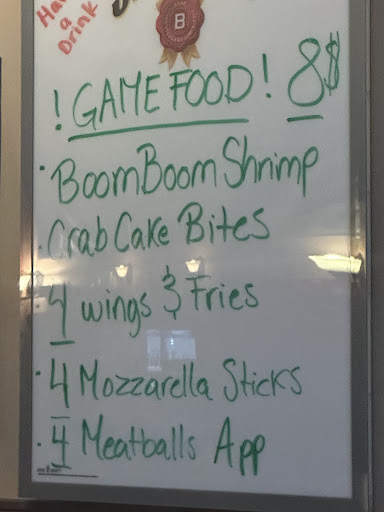 Have
a
Drink
B
! GAME FOOD! 8$
· Boom Boom Shrimp
· Crab Cake Bites
· 4 wings & Fries
· 4 Mozzarella Sticks
· 4 Meatballs App